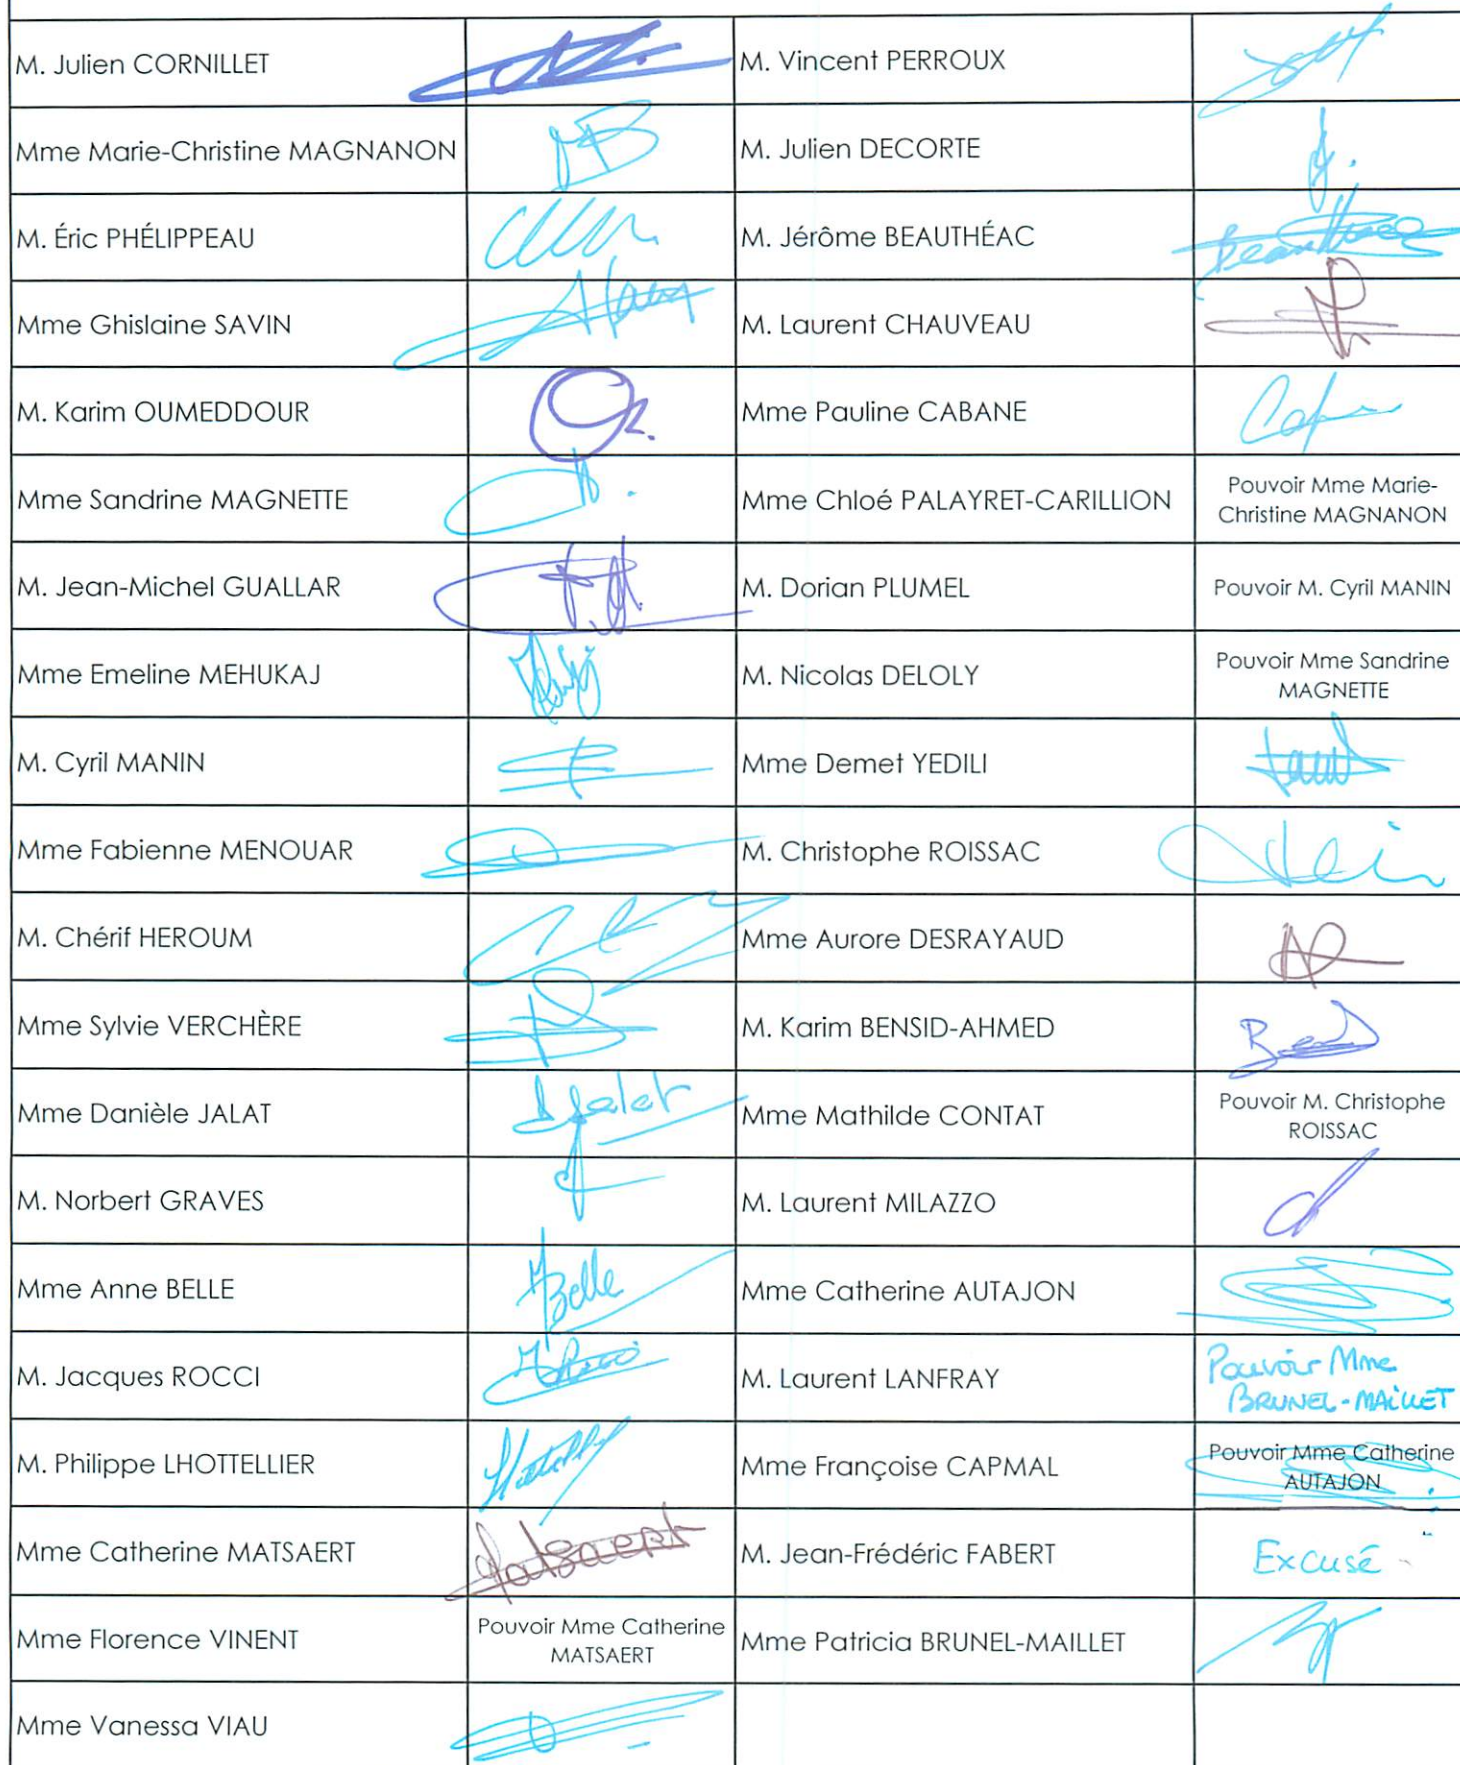 M. Julien CORNILLET
M. Vincent PERROUX
Mme Marie-Christine MAGNANON
M. Julien DECORTE
M. Éric PHÉLIPPEAU
M. Jérôme BEAUTHÉAC
Mme Ghislaine SAVIN
M. Laurent CHAUVEAU
M. Karim OUMEDDOUR
Mme Pauline CABANE
Mme Sandrine MAGNETTE
Mme Chloé PALAYRET-CARILLION
Pouvoir Mme Marie-
Christine MAGNANON
M. Jean-Michel GUALLAR
M. Dorian PLUMEL
Pouvoir M. Cyril MANIN
Mme Emeline MEHUKAJ
M. Nicolas DELOLY
Pouvoir Mme Sandrine
MAGNETTE
M. Cyril MANIN
Mme Demet YEDILI
Mme Fabienne MENOUAR
M. Christophe ROISSAC
M. Chérif HEROUM
Mme Aurore DESRAYAUD
Mme Sylvie VERCHÈRE
M. Karim BENSID-AHMED
Mme Danièle JALAT
Jalat
Mme Mathilde CONTAT
Pouvoir M. Christophe
ROISSAC
M. Norbert GRAVES
M. Laurent MILAZZO
Mme Anne BELLE
Belle
Mme Catherine AUTAJON
M. Jacques ROCCI
M. Laurent LANFRAY
Pouvoir Mme
BRUNEL-MAILLET
M. Philippe LHOTTELLIER
Mme Françoise CAPMAL
Pouvoir Mme Catherine
AUTAJON
Mme Catherine MATSAERT
Matsaert
M. Jean-Frédéric FABERT
Excusé
Mme Florence VINENT
Pouvoir Mme Catherine
MATSAERT
Mme Patricia BRUNEL-MAILLET
Mme Vanessa VIAU